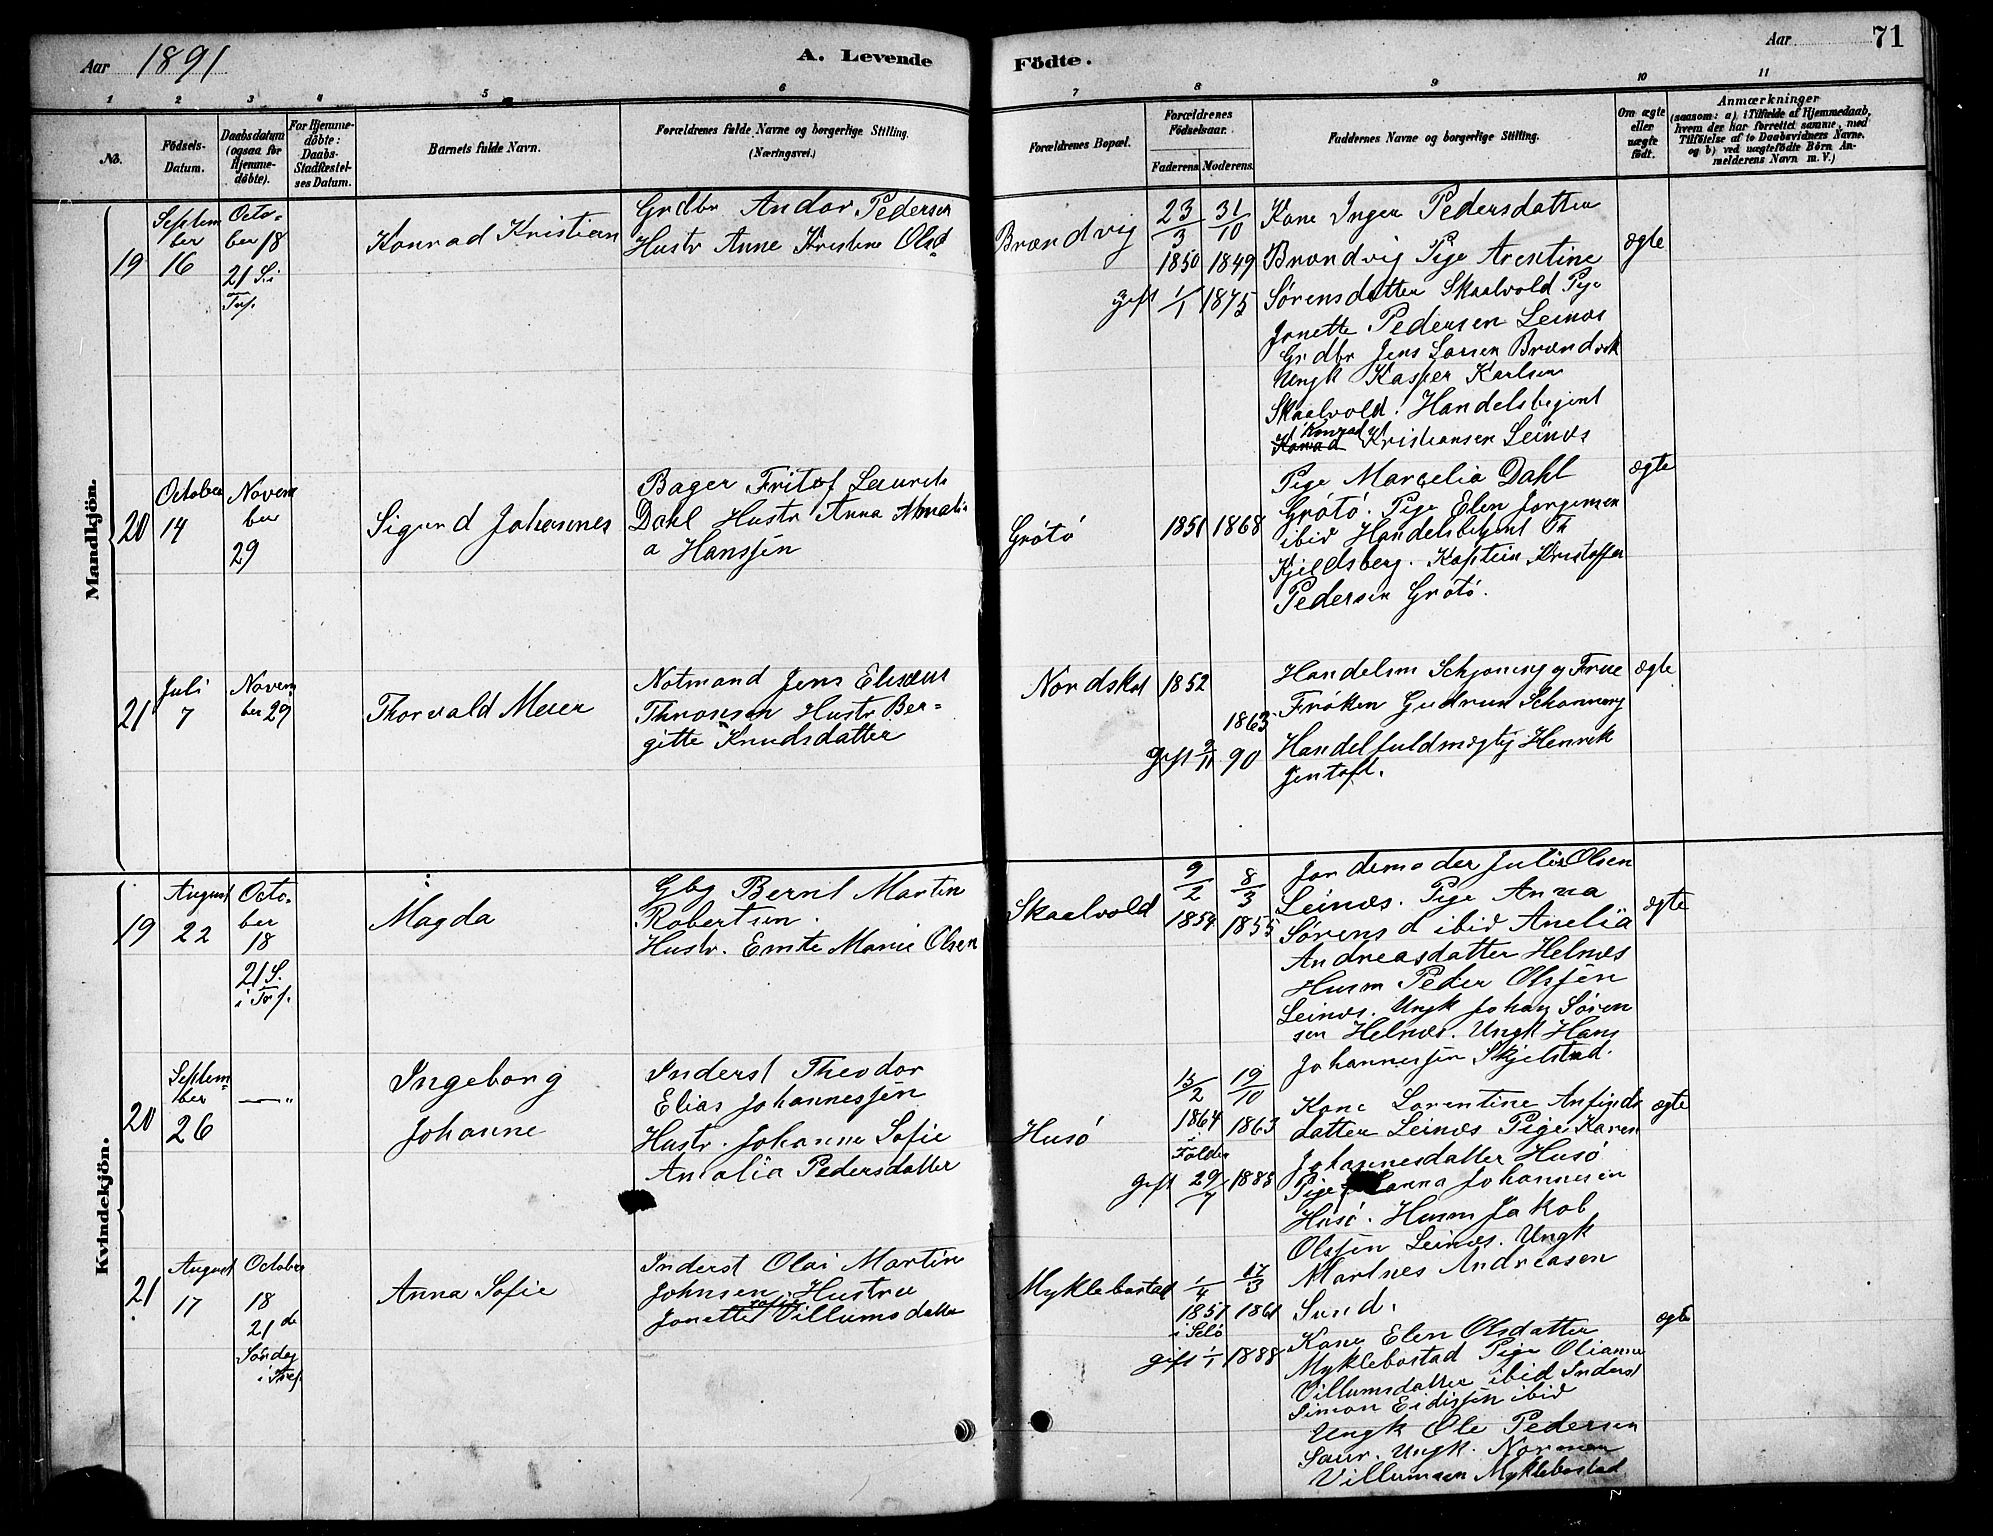 Aar 1891
A. Levende Födte.
Aar 71
1 2 3 4 5 6 7 8 9 10 11
No.
Födsels-Datum.
Daabsdatum (ogsaa for Hjemme-döbte).
For Hjemme-döbte: Daabs-Stadfæstel-ses Datum.
Barnets fulde Navn.
Forældrenes fulde Navne og borgerlige Stilling.
(Næringsvei.)
Forældrenes Bopæl.
Forældrenes Födselsaar.
Faderens. Moderens.
Faddernes Navne og borgerlige Stilling.
Om ægte eller uægte födt.
Anmærkninger
(saasom: a) i Tilfælde af Hjemmedaab, hvem der har forrettet samme, med Tilföielse af to Daabsvidners Navne, og b) ved uægtefödte Börn Anmelderens Navn m. V.)
Mandkjön.
19
Septem
ber
16
Octo-
ber 18
21 S. i
Tref.
Konrad Kristian
Grdbr Andor Pedersen
Hustr Anne Kristine Olsd
Brændvig
23/3 1850
31/10 1849
gift 1/1 1875
Kone Inger Pedersdatter
Brændvig Pige Arentine
Sørensdatter Skaalvold Pige
Jonette Pedersen Leines
Grdbr Jens Larsen Brændvik
Ungk Kasper Karlsen
Skaalvold. Handelsbetjent
Konrad Kristiansen Leines
ægte
20
October
14
Novem
ber
29
Sigurd Johannes
Bager Fritjof Laurits
Dahl Hustr Anna Amali-
a Hanssen
Grøtø
1851
1868
Pige Marselia Dahl
Grøtø. Pige Elen Jørgensen
ibid Handelsbetjent Th
Kjeldsberg. Kaptein Kristoffer
Pedersen Grøtø.
ægte
21
Juli
7
Novem
ber 29
Thorvald Meier
Notmand Jens Elisæus
Thronsen Hustr Ber-
gitte Knudsdatter
Nordskot
1852
1863
gift 9/11 90
Handelsm Schjøning og Frue
Frøken Gudrun Schønning
Handelfuldmægtig Henrik
Jentoft.
ægte
Kvindekjön.
19
August
22
Octo-
ber
18
21 S.
i Tref.
Magda
Gbg Bernt Martin
Robertsen.
Hustr. Emte Marie Olsen
Skaalvold
9/2 1854
8/3 1855
Jordemoder Julie Olsen
Leines. Pige Anna
Sørensd ibid Anelia
Andreasdatter Helnes
Husm Peder Olssen
Leines. Ungk Johan Søren
sen Helnes. Ungk Hans
Johannessen Skjelstad.
ægte
20
Septem
ber
26
—"
Ingeborg
Johanne
Inderst Theodor
Elias Johannessen
Hustr. Johanne Sofie
Amalia Pedersdatter
Husø
15/2 1864
i Folden
19/10 1863
gift 29/7 1888
Kone Lorentine Anfinds
datter Leines Pige Karen
Johannesdatter Husø
Pige Hanna Johannesen
Husø. Husm Jakob
Olssen Leines. Ungk
Martnes Andreasen
Sund.
ægte
21
August
17
October
18
21 de
Søndag
i Tref.
Anna Sofie
Inderst Olai Martin
Johnsen Hustru
Jonette Sofie Villumsdatter
Myklebostad
1/4 1851
i Selø
17/3 1861
gift 1/1 1888
Kone Elen Olsdatter
Myklebostad Pige Olianne
Villumsdatter ibid Inderst
Simon Eidissen ibid
Ungk Ole Pedersen
Saur. Ungk. Norman
Villumsen Myklebostad
ægte